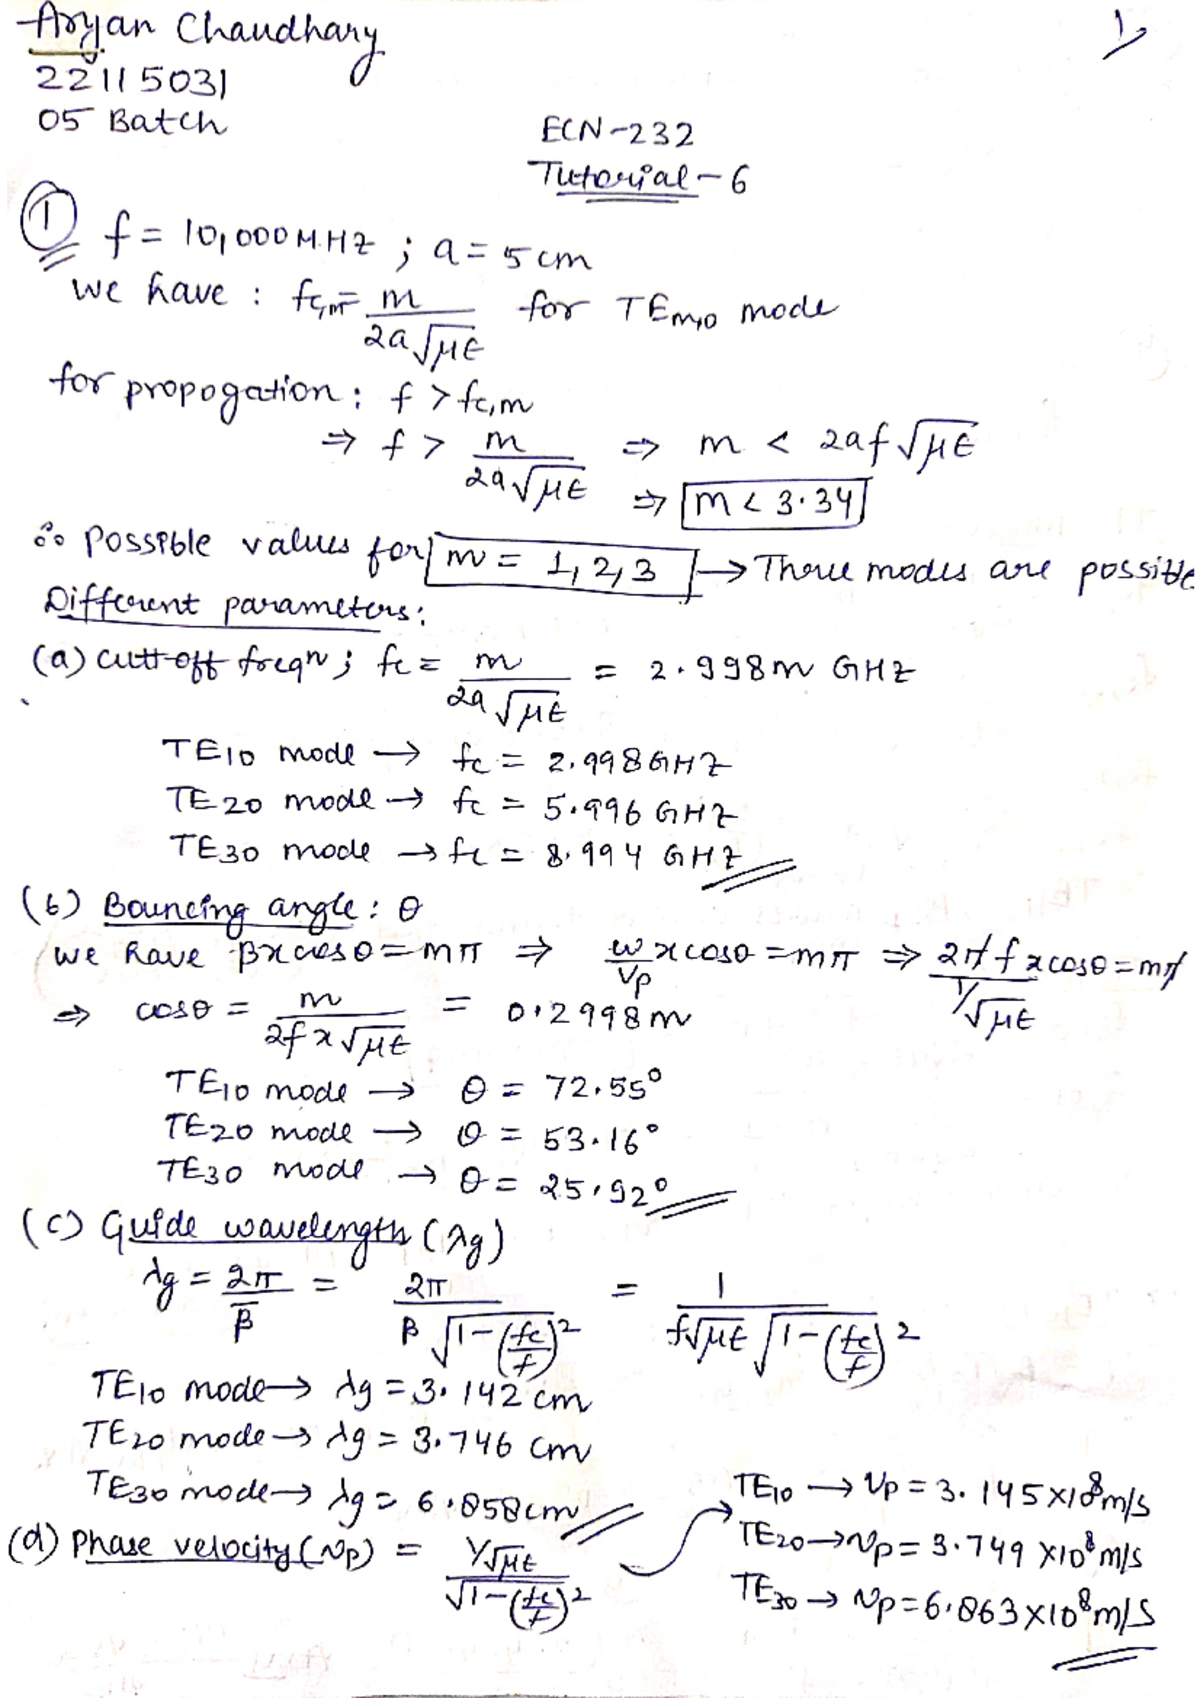 Aryan Chaudhary
1
22115031
05 Batch
ECN-232
Tutorial-6
① f = 10,000 M.HZ ; a = 5 cm
we have : fc,m = m / 2a√με for TEm,0 mode
for propogation : f > fc,m
⇒ f > m / 2a√με ⇒ m < 2af√με
⇒ m < 3.34
∴ Possible values for m = 1, 2, 3 → Three modes are possible
Different parameters:
(a) Cutt-off freqn ; fc = m / 2a√με = 2.998m GHZ
TE10 mode → fc = 2.998 GHZ
TE20 mode → fc = 5.996 GHZ
TE30 mode → fc = 8.994 GHZ
(b) Bouncing angle : θ
we have βxcosθ = mπ ⇒ w/vp xcosθ = mπ ⇒ 2πf xcosθ / 1/√με = mπ
⇒ cosθ = m / 2fx√με = 0.2998m
TE10 mode → θ = 72.55°
TE20 mode → θ = 53.16°
TE30 mode → θ = 25.92°
(c) Guide wavelength (λg)
λg = 2π / β̄ = 2π / β√1-(fc/f)² = 1 / f√με √1-(fc/f)²
TE10 mode → λg = 3.142 cm
TE20 mode → λg = 3.746 cm
TE30 mode → λg = 6.858 cm
(d) Phase velocity (vp) = 1/√με / √1-(fc/f)²
TE10 → vp = 3.145×10⁸ m/s
TE20 → vp = 3.749 ×10⁸ m/s
TE30 → vp = 6.863 ×10⁸ m/s